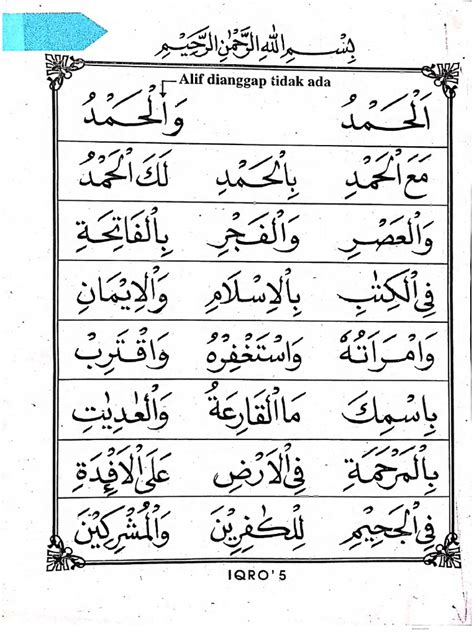 بِسْمِ اللهِ الرَّحْمٰنِ الرَّحِيْمِ
Alif dianggap tidak ada
اَلْحَمْدُ وَالْحَمْدُ
مَعَ الْحَمْدِ بِالْحَمْدِ لَكَ الْحَمْدُ
وَالْعَصْرِ وَالْفَجْرِ بِالْفَاتِحَةِ
فِى الْكِتٰبِ بِالْاِسْلَامِ وَالْاِيْمَانِ
وَامْرَاَتُهٗ وَاسْتَغْفِرْهُ وَاقْتَرِبْ
بِاسْمِكَ مَا الْقَارِعَةُ وَالْعٰدِيٰتِ
بِالْمَرْحَمَةِ فِى الْاَرْضِ عَلَى الْاَفْـِٕدَةِ
فِى الْجَحِيْمِ لِلْكٰفِرِيْنَ وَالْمُشْرِكِيْنَ
IQRO' 5